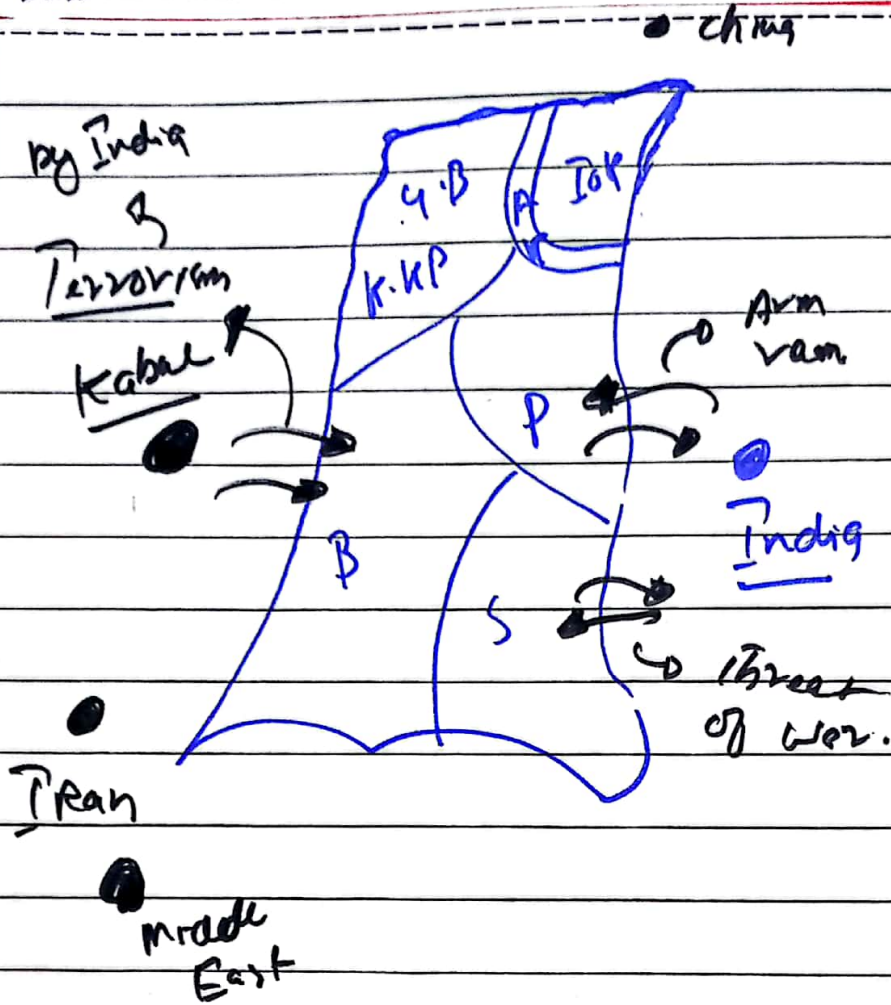 China
by India
Terrorism
Kabul
G.B
A
IOK
K.KP
Arm
P
India
B
S
Threat
of war.
Iran
Middle
East